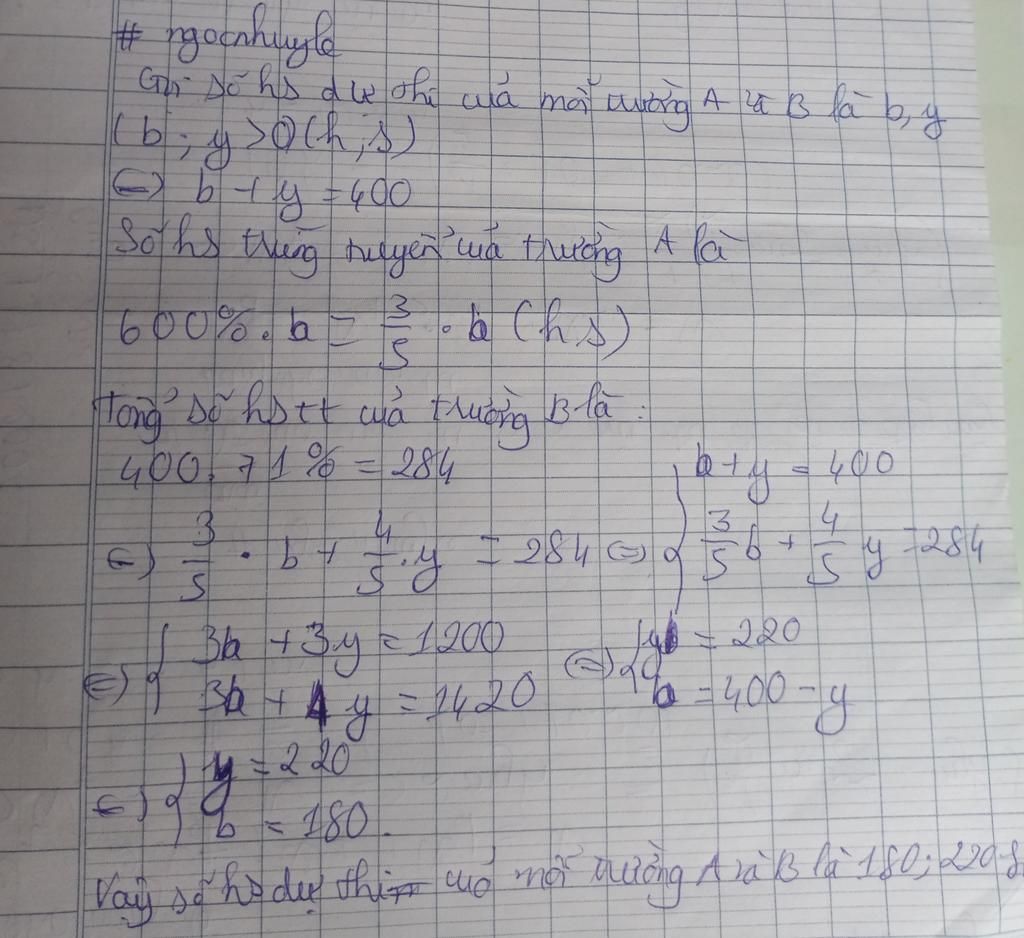 # ngocnhuyle
Gọi số hs dự thi của mỗi trường A và B là b, y
(b ; y > 0 (h, s)
(=) b + y = 400
Số hs trúng tuyển của trường A là
600% . b = 3/5 . b (h s)
Tổng số hs tt của trường B là :
400 . 71% = 284
(=) 3/5 . b + 4/5 . y = 284 (=) { b + y = 400
3/5 b + 4/5 y = 284
(=) { 3b + 3y = 1200
3b + 4y = 1420
(=) { y = 220
b = 400 - y
(=) { y = 220
b = 180 .
Vậy số hs dự thi củ mỗi trường A và B là 180; 220